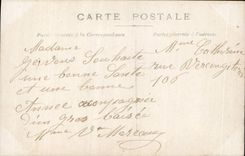 CARTE POSTALE
Partie réservée à la Correspondance
Partie réservée à l'adresse
Madame
Je vous Souhaite
une bonne Santé
et une bonne
Année accompagnée
d'un gros baiser
Mme Vve
Mme
rue Vercingétorix
106